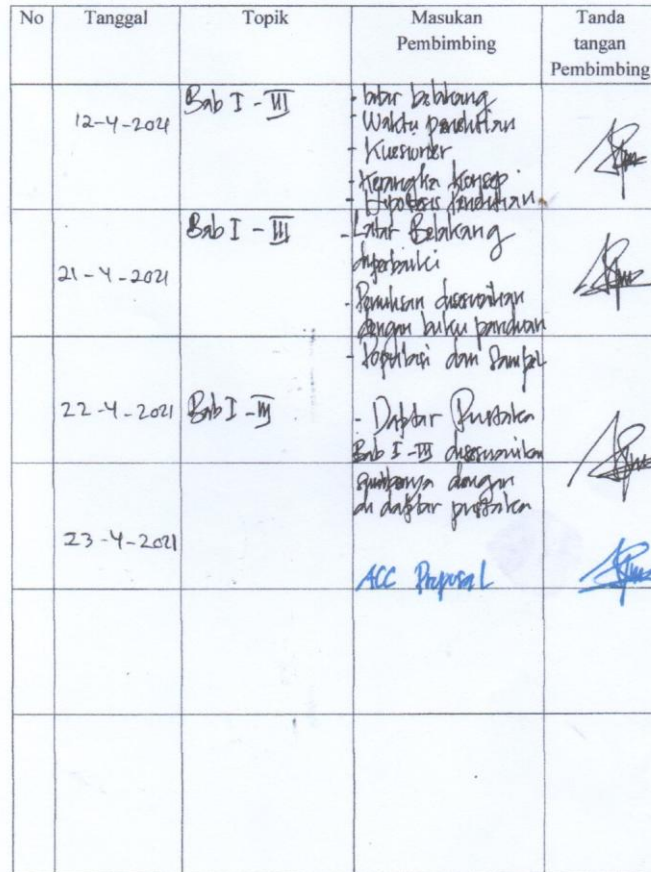 No Tanggal Topik Masukan Pembimbing Tanda tangan Pembimbing
12-4-2021 Bab I - III - latar belakang
- Waktu penelitian
- Kuesioner
- Kerangka konsep
- Hipotesis penelitian
21-4-2021 Bab I - III - Latar Belakang
diperbaiki
- Penulisan disesuaikan
dengan buku panduan
- Populasi dan Sampel
22-4-2021 Bab I - III - Daftar Pustaka
Bab I - III disesuaikan
dengan
di daftar pustaka
23-4-2021
ACC Proposal